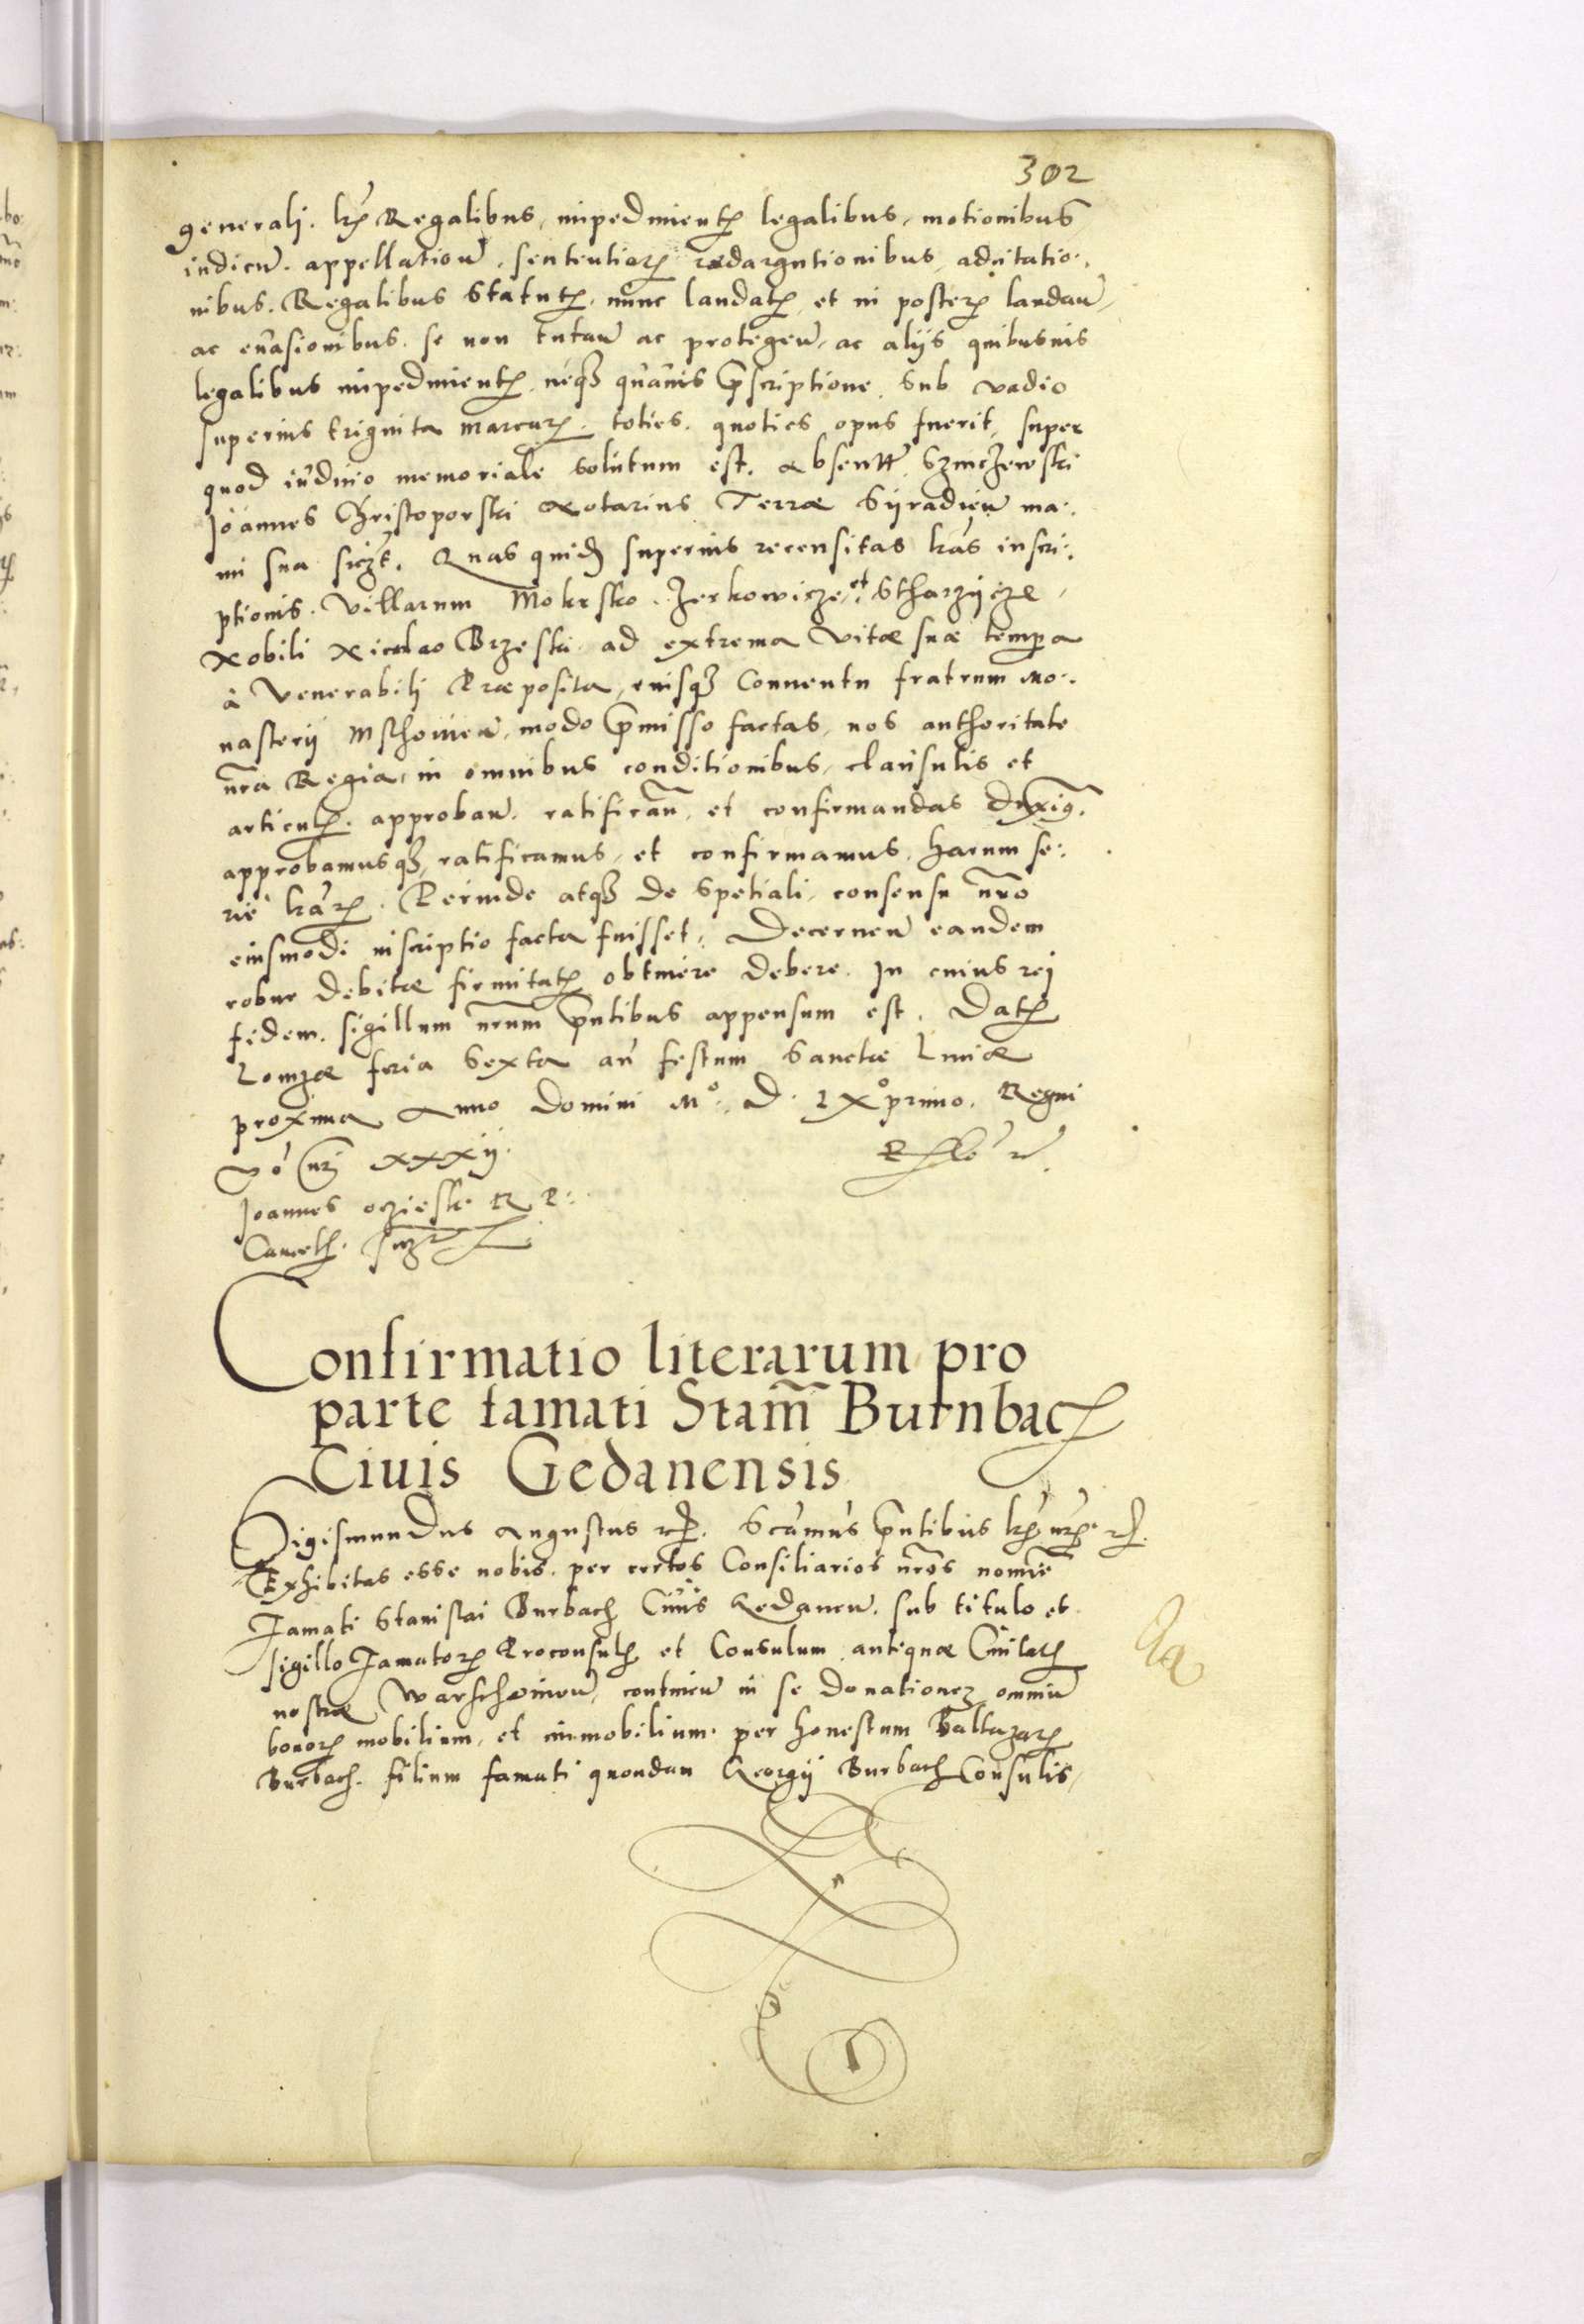 302
generalj. lris Regalibus, impedimentis legalibus, motionibus
iudicum. appellation, sententiarum redargutionibus, adcitatio:
nibus. Regalibus Statutis, nunc laudatis, et in posterum laudan,
ac euasionibus. se non tutan ac protegen, ac alijs quibusuis
legalibus impedimentis, neque quauis praescriptione, sub vadio
superius triginta marcarum. toties. quoties opus fuerit, super
quod iudicio memoriale solutum est. absentt Szmczewski
Joannes Christoporski Notarius Terrae Syradien ma:
nu sua scrpt. Quas quidem superius recensitas lras inscri:
ptionis. Villarum Mokrsko. Zerkowicze, et Stharzycze,
Nobili Nicolao Brzeski ad extrema vitae suae tempora
à Venerabilj Praeposito, eiusque Conuentu fratrum Mo:
nasterij Msthouien, modo praemisso factas, nos authoritate
nra Regia, in omnibus conditionibus, clausulis et
articulis. approban. ratifican, et confirmandas duximus.
approbamusque, ratificamus, et confirmamus, harum se:
rie lrarum. Perinde atque de Spetiali, consensu nro
eiusmodi inscriptio facta fuisset, Decernen eandem
robur debitae firmitatis obtinere debere. In cuius rej
fidem. sigillum nrum pntibus appensum est. Datum
Lomzae feria Sexta an festum Sanctae Luciae
proxima Anno Domini Mo. D. LXo primo. Regni
vo nrj XXXij.
Joannes oczieski R P:
Cancell.
Confirmatio literarum pro
parte famati Stani Burnbach
Ciuis Gedanensis
Sigismundus Augustus rc. Scamus pntibus lris nris. rc.
Exhibitas esse nobis. per certos Consiliarios nros nomine
Famati Stanislai Burbach Ciuis Gedanen. sub titulo et
sigillo Famatorum Proconsulis et Consulum antiquae Ciuitatis
nostrae Warschouien, continen in se donationem omnium
bonorum mobilium, et immobilium. per honestum Baltazarum
Burbach. filium famati quondam Georgij Burbach Consulis,